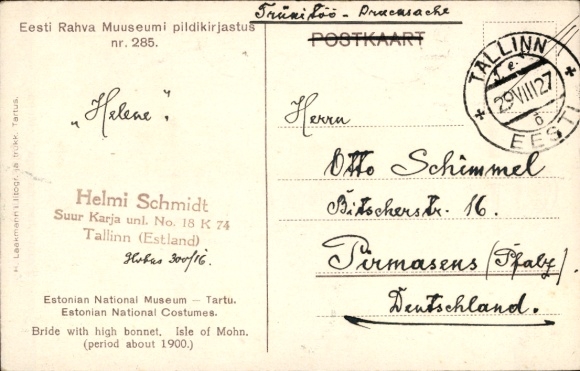 Trükitöö - Drucksache
Eesti Rahva Muuseumi pildikirjastus
nr. 285.
POSTKAART
TALLINN
29 VIII 27
EESTI
„Helene".
Herrn
Otto Schimmel
Bitscherstr. 16.
Pirmasens (Pfalz)
Deutschland.
Helmi Schmidt
Suur Karja uul. No. 18 K 74
Tallinn (Estland)
300/16.
Estonian National Museum — Tartu.
Estonian National Costumes.
Bride with high bonnet. Isle of Mohn.
(period about 1900.)
H. Laakmann'i litogr. ja trükk. Tartus.